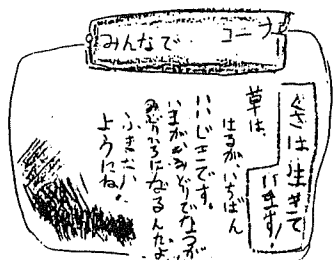 みんなで コーナー
くさは 生きて
います!
草は、
はるがいちばん
いいじきです。
いまがみどりでなつが
みどりいろになるんだよ
ふまない
ようにね!